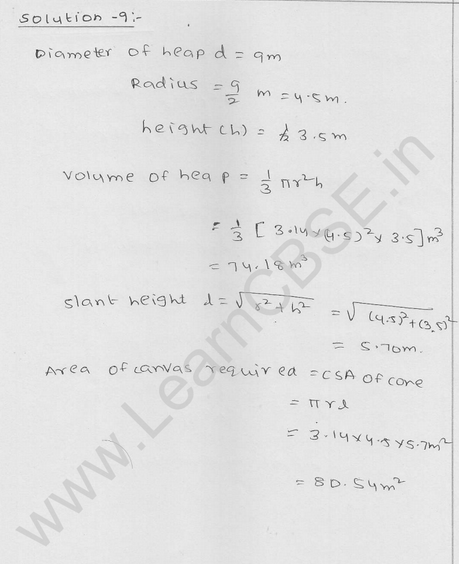 Solution -9:-
Diameter of heap d = 9m
Radius = 9/2 m = 4.5m.
height (h) = 3.5m
Volume of heap = 1/3 πr²h
= 1/3 [3.14 × (4.5)² × 3.5] m³
= 74.18m³
slant height l = √r² + h² = √(4.5)² + (3.5)²
= 5.70m.
Area of canvas required = CSA of cone
= πrl
= 3.14 × 4.5 × 5.7m²
= 80.54m²
www.LearnCBSE.in